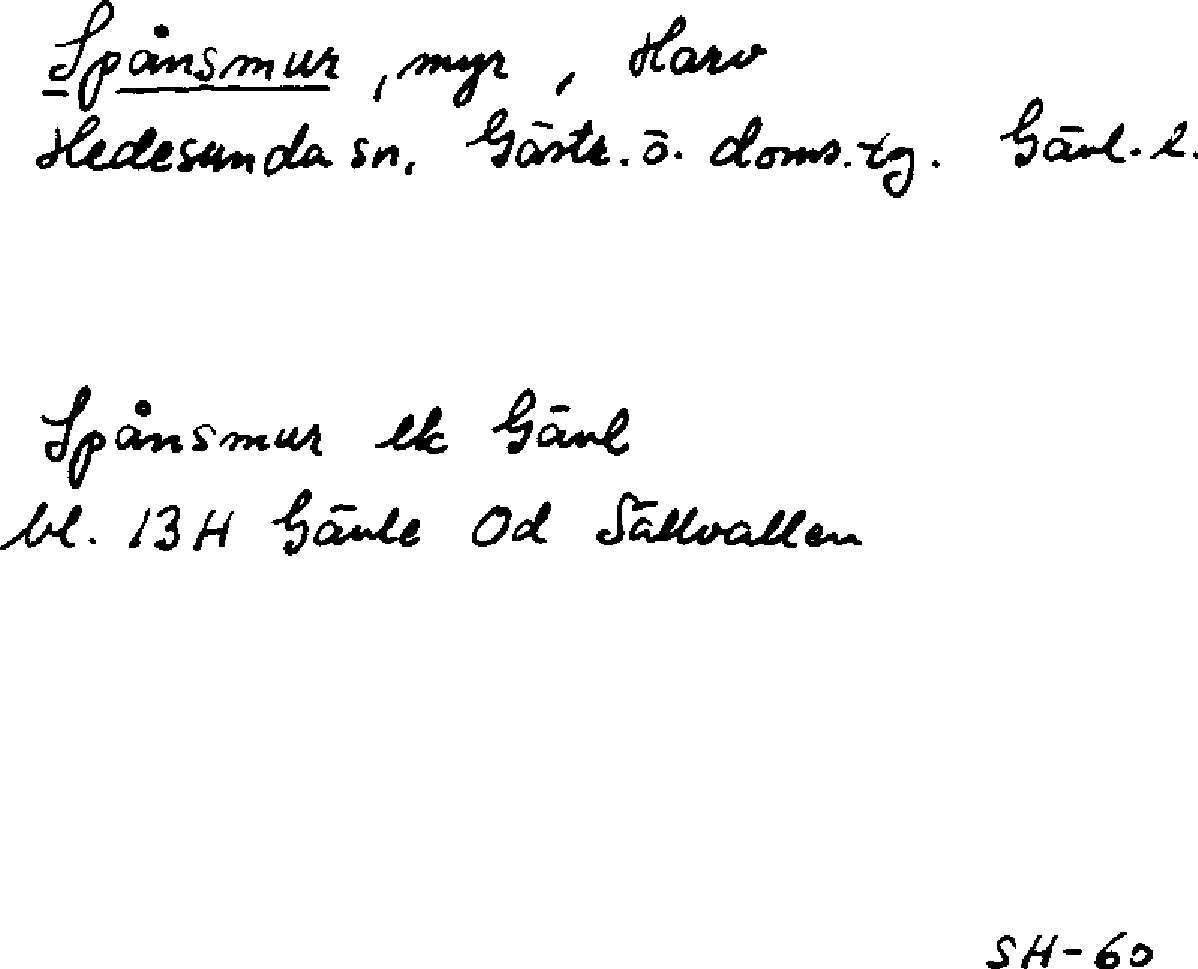 Spånsmur, myr, Harv
Hedesunda sn. Gästr. ö. doms. tg. Gävl. l.
Spånsmur ek Gävl
bl. 13H Gävle Od Sällvallen
SH-60